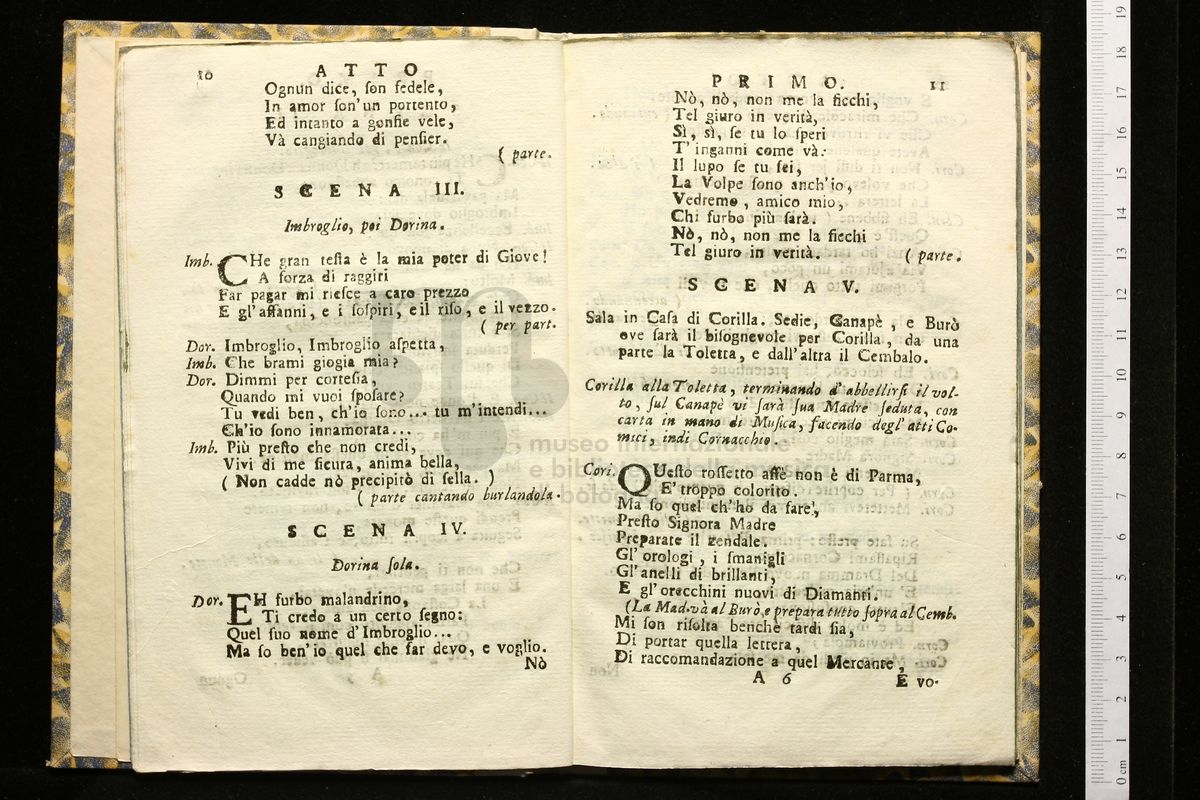 10
ATTO
Ognun dice, ſon fedele,
In amor ſon'un portento,
Ed intanto a gonfie vele,
Và cangiando di penſier.
( parte.
SCENA III.
Imbroglio, poi Dorina.
Imb. CHe gran teſta è la mia poter di Giove!
A forza di raggiri
Far pagar mi rieſce a caro prezzo
E gl'affanni, e i ſoſpiri, e il riſo, e il vezzo.
( per part.
Dor. Imbroglio, Imbroglio aſpetta,
Imb. Che brami giogia mia?
Dor. Dimmi per corteſia,
Quando mi vuoi ſpoſare?
Tu vedi ben, ch'io ſono... tu m'intendi...
Ch'io ſono innamorata...
Imb. Più preſto che non credi,
Vivi di me ſicura, anima bella,
( Non cadde nò precipitò di ſella. )
( parte cantando burlandola.
SCENA IV.
Dorina ſola.
Dor. EH furbo malandrino,
Ti credo a un certo ſegno:
Quel ſuo nome d'Imbroglio...
Ma ſo ben'io quel che far devo, e voglio.
Nò
PRIMO.
11
Nò, nò, non me la ficchi,
Tel giuro in verità,
Sì, sì, ſe tu lo ſperi
T' inganni come và.
Il lupo ſe tu ſei,
La Volpe ſono anch'io,
Vedremo, amico mio,
Chi furbo più ſarà.
Nò, nò, non me la ficchi
Tel giuro in verità.
( parte.
SCENA V.
Sala in Caſa di Corilla. Sedie, Canapè, e Burò
ove ſarà il biſognevole per Corilla, da una
parte la Toletta, e dall'altra il Cembalo.
Corilla alla Toletta, terminando d'abbellirſi il vol-
to, ſul Canapè vi ſarà ſua Madre ſeduta, con
carta in mano di Muſica, facendo degl'atti Co-
mici, indi Cornacchio.
Cori. QUeſto roſſetto affè non è di Parma,
E' troppo colorito.
Ma ſo quel ch'ho da fare,
Preſto Signora Madre
Preparate il zendale.
Gl' orologi, i ſmanigli
Gl'anelli di brillanti,
E gl'orecchini nuovi di Diamanti.
(La Mad.và al Burò,e prepara tutto ſopra al Cemb.
Mi ſon riſolta benchè tardi ſia,
Di portar quella lettera,
Di raccomandazione a quel Mercante,
A 6
E vo-
museo internazionale
e bibl